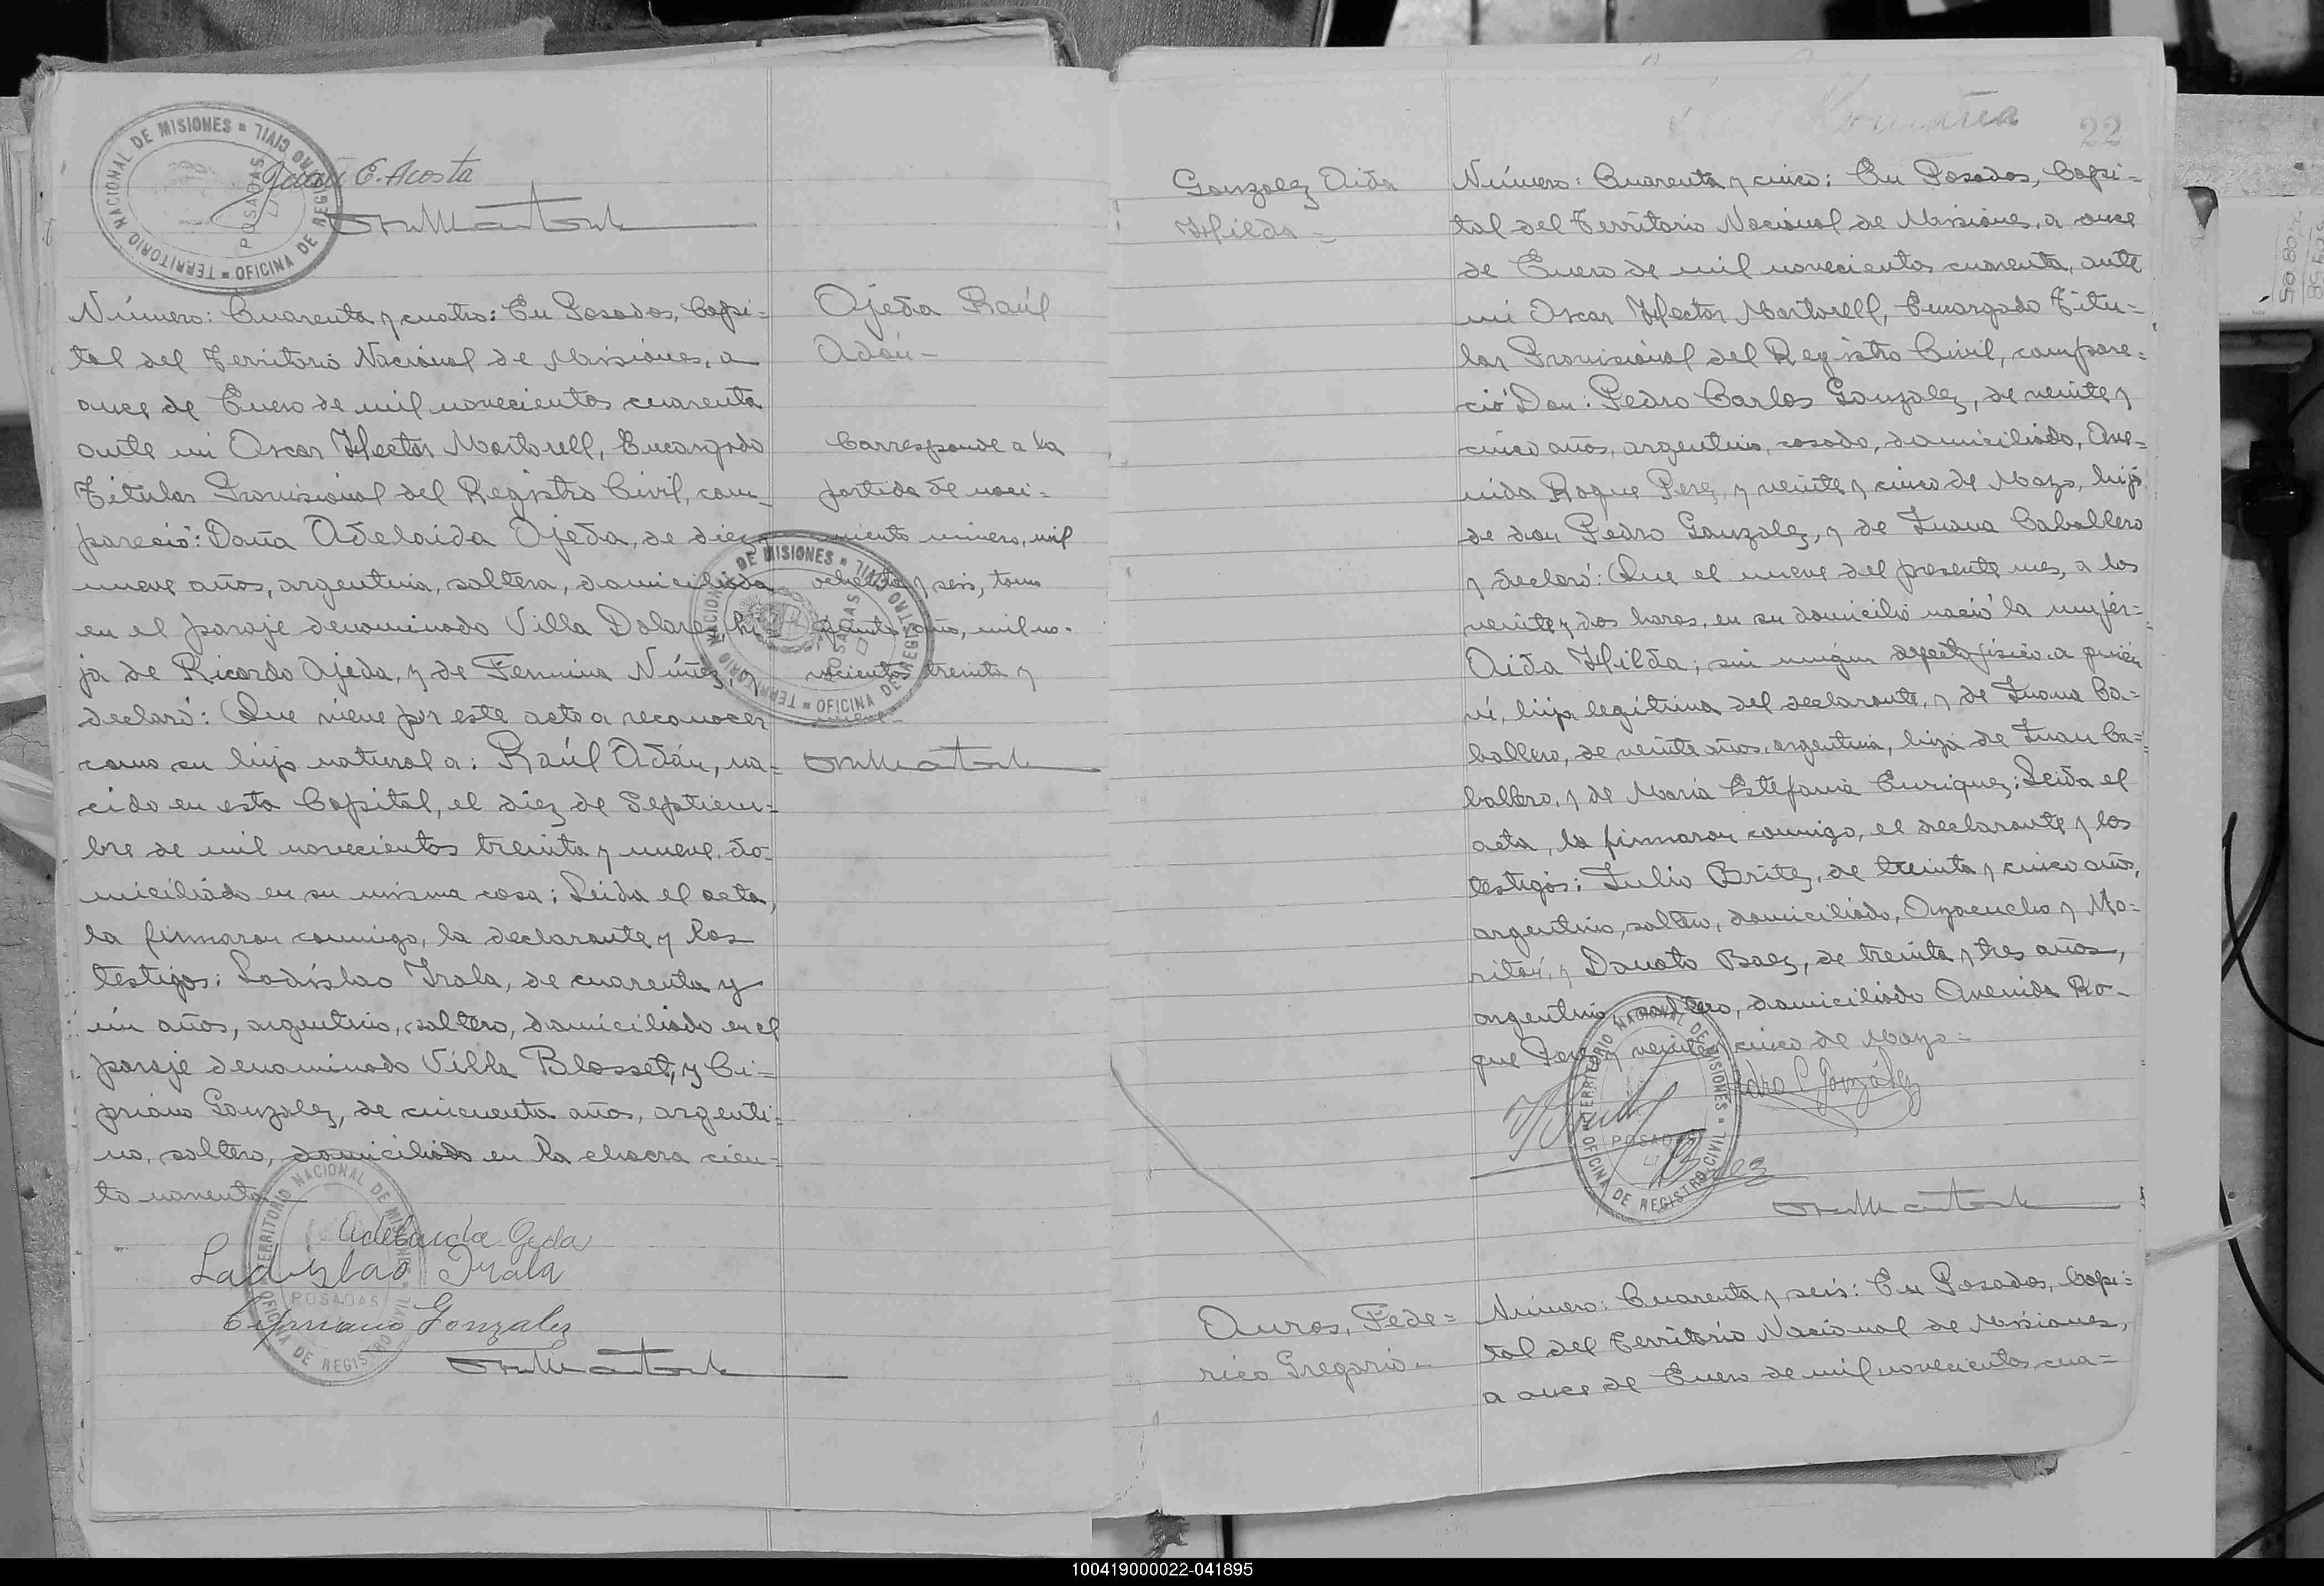 TERRITORIO NACIONAL DE MISIONES = OFICINA DE REGISTRO CIVIL
POSADAS
Juan E. Acosta
Número: Cuarenta y cuatro: En Posadas, Capi=
tal del Territorio Nacional de Misiones, a
once de Enero de mil novecientos cuarenta
ante mi Oscar Hector Martorell, Encargado
Titular Provisional del Registro Civil, com-
pareció: Doña Adelaida Ojeda, de diez y
nueve años, argentina, soltera, domiciliada
en el paraje denominado Villa Dolores, hi=
ja de Ricardo Ojeda, y de Fermina Nuñez, y
declaró: Que viene por este acto a reconocer
como su hijo natural a: Raúl Adán, na=
cido en esta Capital, el diez de Septiem=
bre de mil novecientos treinta y nueve, do-
miciliado en su misma casa: Leida el acta,
la firmaron conmigo, la declarante y los
testigos: Ladislao Irala, de cuarenta y
un años, argentino, soltero, domiciliado en el
paraje denominado Villa Blosset, y Ci=
priano Gonzalez, de cincuenta años, argenti=
no, soltero, domiciliado en la chacra cien=
to noventa
Adelaida Ojeda
Ladislao Irala
Cipriano Gonzalez
TERRITORIO NACIONAL DE MISIONES = OFICINA DE REGISTRO CIVIL
POSADAS
Ojeda Raúl
Adán -
Corresponde a la
partida de naci=
miento número, mil
ochenta y seis, tomo
año, mil no-
vecientos treinta y
nueve -
TERRITORIO NACIONAL DE MISIONES = OFICINA DE REGISTRO CIVIL
POSADAS
22
Gonzalez Aida
Hilda =
Número: Cuarenta y cinco: En Posadas, Capi=
tal del Territorio Nacional de Misiones, a once
de Enero de mil novecientos cuarenta, ante
mi Oscar Hector Martorell, Encargado Titu=
lar Provisional del Registro Civil, compare=
ció Don: Pedro Carlos Gonzalez, de veinte y
cinco años, argentino, casado, domiciliado, Ave=
nida Roque Perez, y veinte y cinco de Mayo, hijo
de don Pedro Gonzalez, y de Juana Caballero
y declaró: Que el nueve del presente mes, a las
veinte y dos horas, en su domicilio nació la mujer=
Aida Hilda; sin ningún defecto físico, a quien
ví, hija legitima del declarante, y de Juana Ca=
ballero, de veinte años, argentina, hija de Juan Ca=
ballero, y de María Estefania Enriquez: Leida el
acta, la firmaron conmigo, el declarante y los
testigos: Julio Britez, de treinta y cinco años,
argentino, soltero, domiciliado, Ayacucho y Mo=
ritán, y Donato Baez, de treinta y tres años,
argentino, soltero, domiciliado Avenida Ro-
que Perez y veinte y cinco de Mayo =
Pedro C González
Baez
TERRITORIO NACIONAL DE MISIONES = OFICINA DE REGISTRO CIVIL
POSADAS
Auros, Fede=
rico Gregorio -
Número: Cuarenta y seis: En Posadas, Capi=
tal del Territorio Nacional de Misiones,
a once de Enero de mil novecientos cua=
100419000022-041895